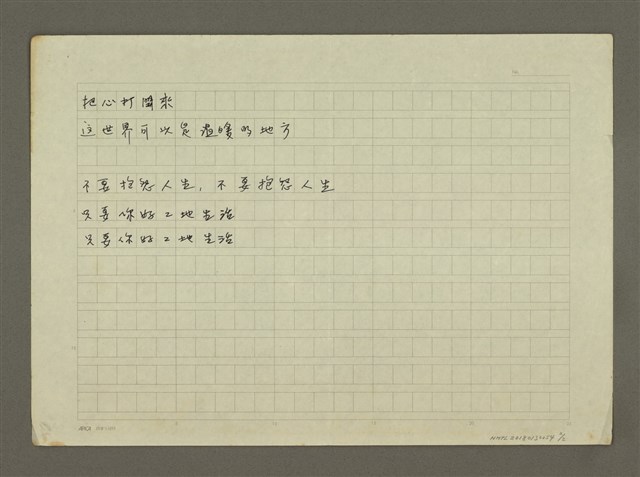 把心打開來
这世界可以是溫暖的地方
不要抱怨人生，不要抱怨人生
只要你好好地生活
只要你好好地生活